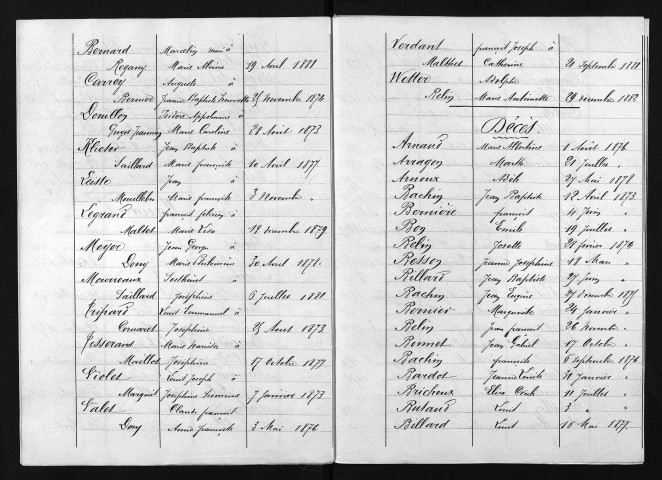 Bernard Marcelin marié à
Regany Marie 19 Avril 1881
Carrey Auguste à
Bernier Jeanne Baptiste 25 Novembre 1876
Douillon Isidore Appolinaire à
Marie Caroline 28 Août 1873
Klieber Jean Baptiste à
Saillard Marie françoise 10 Avril 1877
Jean à
Marie françoise 3 Novembre "
Legrand françois à
Maltot Marie 18 Décembre 1879
Meyer Jean George à
Dony Marie 30 Avril 1878.
Mourreaux à
Saillard Joséphine 6 Juillet 1881
Tripard Louis Emmanuel à
Cornaret Joséphine 25 Août 1873
Tisserand Marie Narcisse à
Maillot Joséphine 17 Octobre 1877
Violet Louis Joseph à
Marguet Joséphine 7 Janvier 1873
Valet Claude françois
Dony Anne françoise 3 Mai 1876
Verdant françois Joseph à
Malthet Catherine 20 Septembre 1881
Wetter Adolphe
Belin Marie Antoinette 29 décembre 1882
Décès.
Arnaud Marie 1 Août 1876
Arragon Marthe 21 Juillet "
Arnoux Adèle 27 Mai 1878
Bachin Jean Baptiste 12 Avril 1873
Bernière françois 4 Juin "
Boy Emile 19 Juillet "
Belin Josette 28 février 1876
Besson Jeanne Josephine 18 Mars "
Billard Jean Baptiste 27 Juin "
Bachin Jean Eugène 27 Décembre 1875
Bernier Marguerite 24 Janvier "
Belin Jean françois 26 Novembre "
Bonnet Jean Gabriel 17 Octobre "
Bachin françoise 6 Septembre 1876
Bardot Jeanne Louise 30 Janvier "
Bricheux Elisa 11 Juillet "
Butaud Louis 3 " "
Billard Louis 15 Mai 1877.